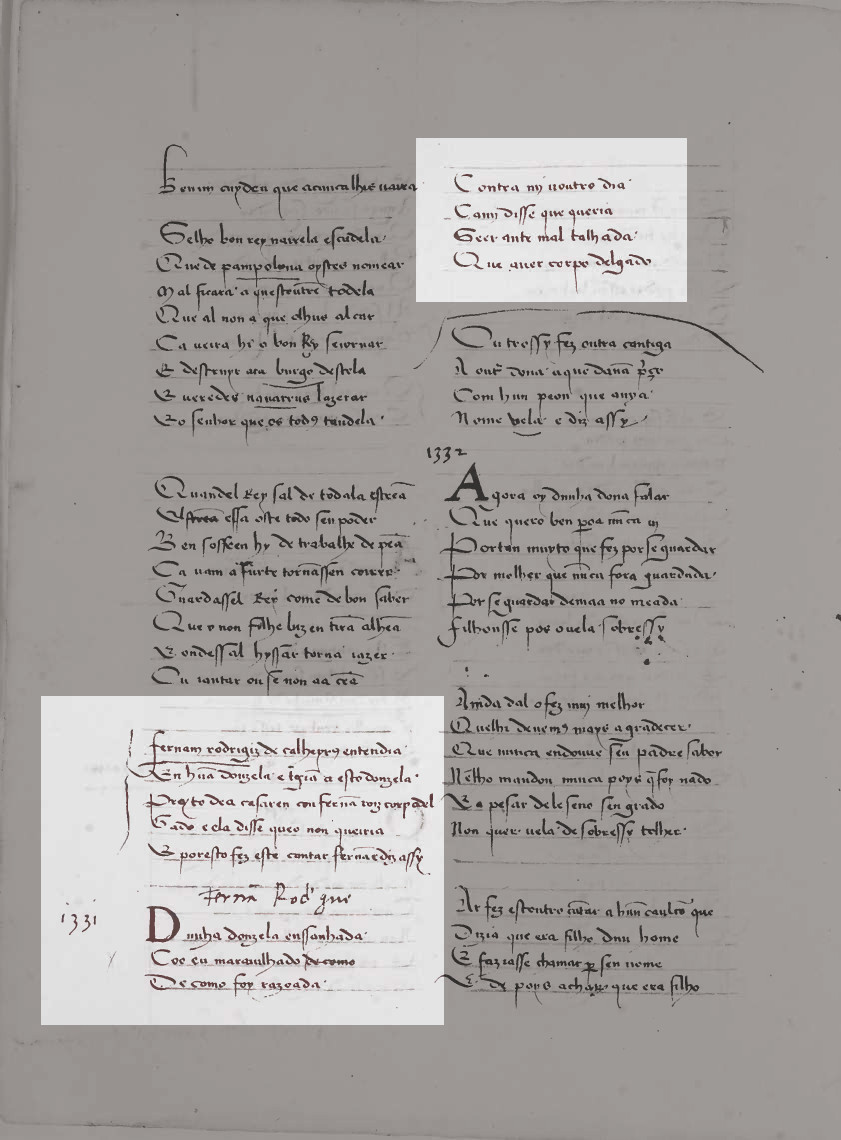 Ben mi cuydeu que a cuncalhis navarra
Selho bon rey vairela escudela
Que de pampolona oystes nomear
Mal ficara a questoutrẽ todela
Que al non a que olhus alçar
Ca verra hi o bon Rey seiornar
E destruyr ata burgo destela
E veredes navarrus lazerar
E o senhor que os todꝯ caudela
Quandel Rey sal de todala estreã
Estrea essa oste todo seu poder
Ben sofren hy de trabalhe de peã
Ca vam a furte tornãssen correr
Guardassel Rey come de bon saber
Que o non filhe luz en tirã alheã
E ondessal hyssar torna iazer
Ou iantar ou se non aa ceã
Fernam rodriguiz de calheyrꝯ entendia
En hũa donzela e tragiã a esta donzela
Preyto de a casaren con fernã roiz corpo del
Gado e ela disse que o non queiria
E por esto fez este cantar fernan e diz assy
Fernã Rodꝰ gue
1331
Dunha donzela ensanhada
Soo eu maravilhado de como
De como foy razoada
Contra mi noutro dia
Cami disse que queria
Seer ante mal talhada
Que aver corpo delgado
Outrossy fez outra cantiga
A outr̃ dona a que davã p̃ço
Com hun peon que avya
Nome vela e diz assy
1332
Agora oy dunha dona falar
Que quero ben pero a nũca vi
Por tan muyto que fez por se guardar
Por molher que nũca fora guardada
Por se guardar de maa nomeada
Filhousse e pos o vela sobressy
Ainda dal o fez mui melhor
Quelhi devemꝯ mays a gradecer
Que nunca en douve seu padre sabor
Nẽlho mandou nunca poys q̃ foy nado
E a pesar dele seno seu grado
Non quer vela de sobressy tolher
Ar fez estoutro cãtar a hũu cavaleyro que
Dizia que era filho dun home
E faziasse chamar per seu nome
E depoys achar que era filho